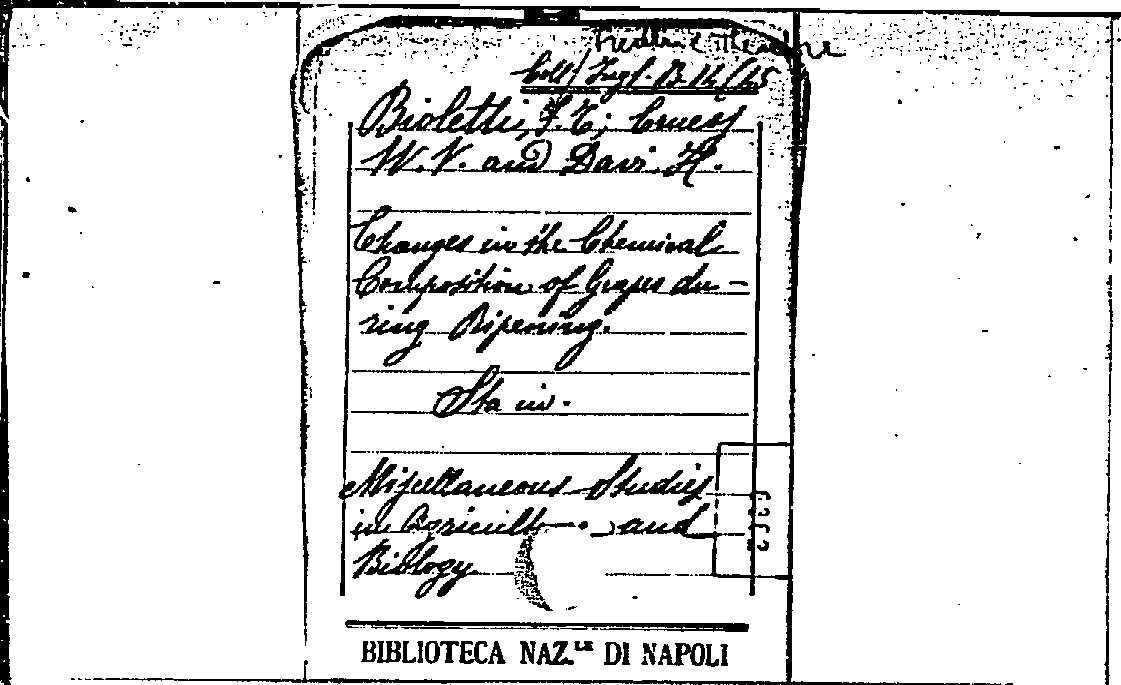 Frederic Theodore
Coll/ Ingl. B 14/65
Bioletti, F. T.; Cruess
W. V. and Davi H.
Changes in the Chemical
Composition of Grapes du-
ring Ripening.
Sta in.
Miscellaneous Studies
in Agricult and
Biology
BIBLIOTECA NAZ.LE DI NAPOLI